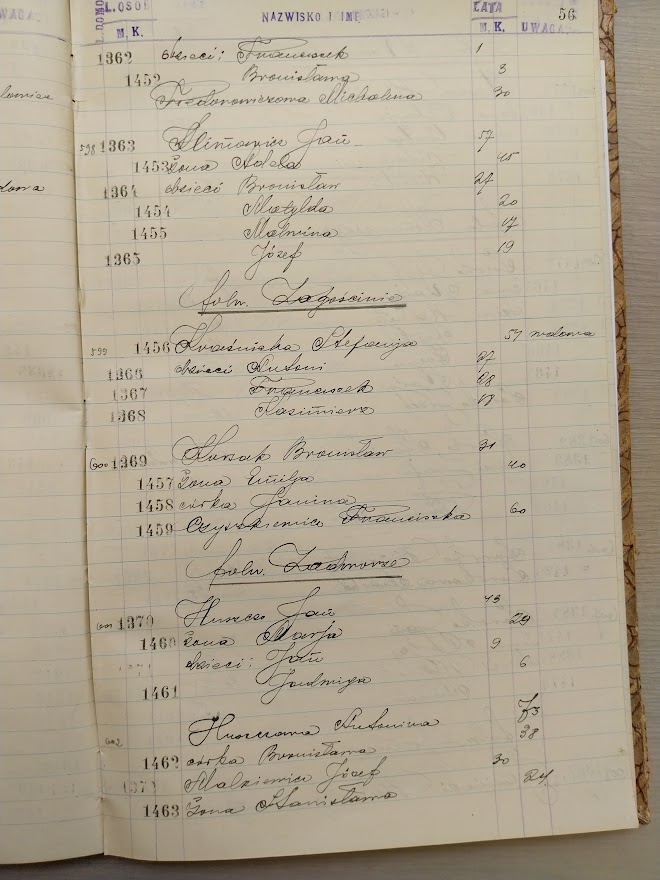 L. OSÓB NAZWISKO I IMIĘ LATA 56
M. K. M. K. UWAGA
1362 dzieci: Franciszek 1
1452 Bronisława 3
Fiedorowiczowa Michalina 30
598 1363 Klimowicz Jan 57
1453 żona Adela 45
1364 dzieci Bronisław 27
1454 Matylda 20
1455 Malwina 17
1365 Józef 19
folw. Zagościnie
599 1456 Kraśnicka Stefanja 57 wdowa
1366 dzieci Antoni 27
1367 Franciszek 28
1368 Kazimierz 18
600 1369 Korsak Bronisław 31
1457 żona Emilja 40
1458 córka Janina
1459 Czyszkiewicz Franciszka 60
folw. Zadworze
601 1370 Huszcza Jan 43
1460 żona Marja 29
1371 dzieci: Jan 9
1461 Jadwiga 6
602 Huszczowa Antonina 73
1462 córka Bronisława 38
137 Józef 30
1463 żona Stanisława 24